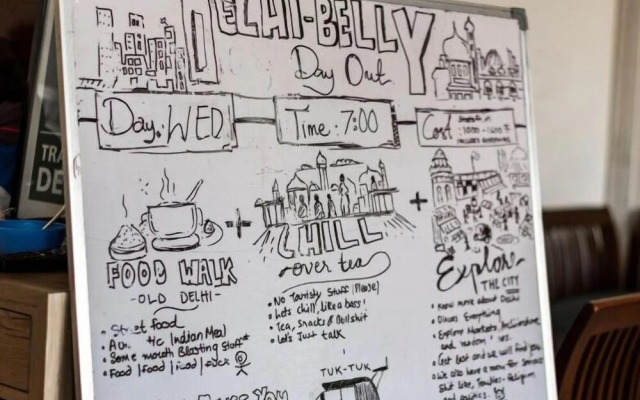 DELHI-BELLY
Day Out
Day: WED
Time: 7:00
Cost
TRA
DE
FOOD WALK
- OLD DELHI -
• Street Food
Indian Meal
• Some mouth Blasting Stuff
• Food | Food | Food |
CHILL
over tea
• No Touristy Stuff (Please)
• Lets Chill, like a boss!
• Tea, Snacks & Bullshit
• Let's Just talk
TUK-TUK
YOU
Explore
THE CITY
• Know more about Delhi
• Discuss Everything
• Explore Markets, Architecture
and
• Get lost and we will find you
• We also have a menu for Serious
Shit like, Religion
and politics.